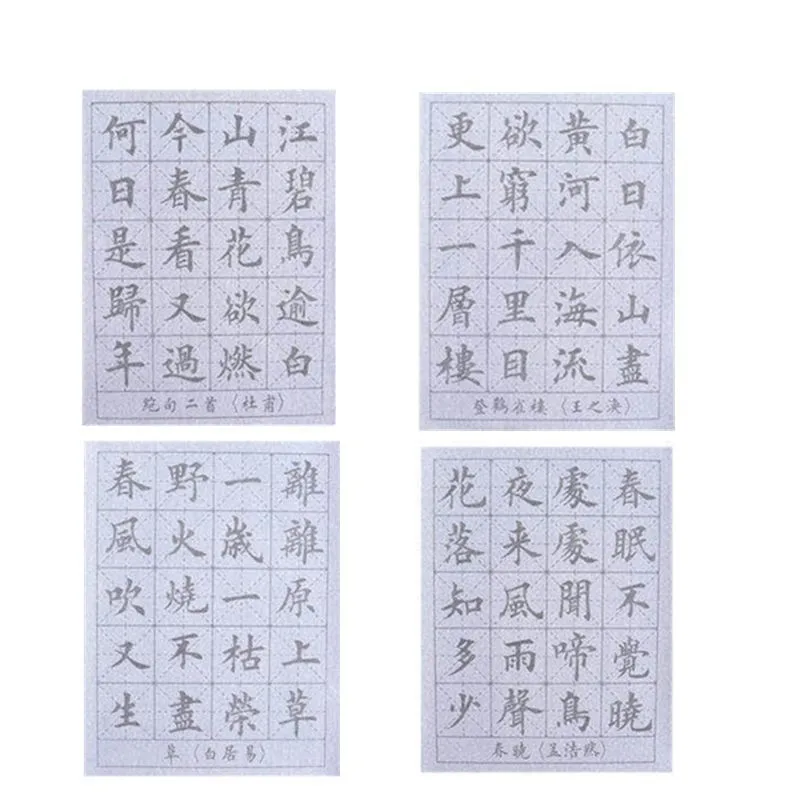 江碧鳥逾白
山青花欲燃
今春看又過
何日是歸年
絶句二首〈杜甫〉
白日依山盡
黃河入海流
欲窮千里目
更上一層樓
登鸛雀樓〈王之渙〉
離離原上草
一歲一枯榮
野火燒不盡
春風吹又生
草〈白居易〉
春眠不覺曉
處處聞啼鳥
夜来風雨聲
花落知多少
春曉〈孟浩然〉